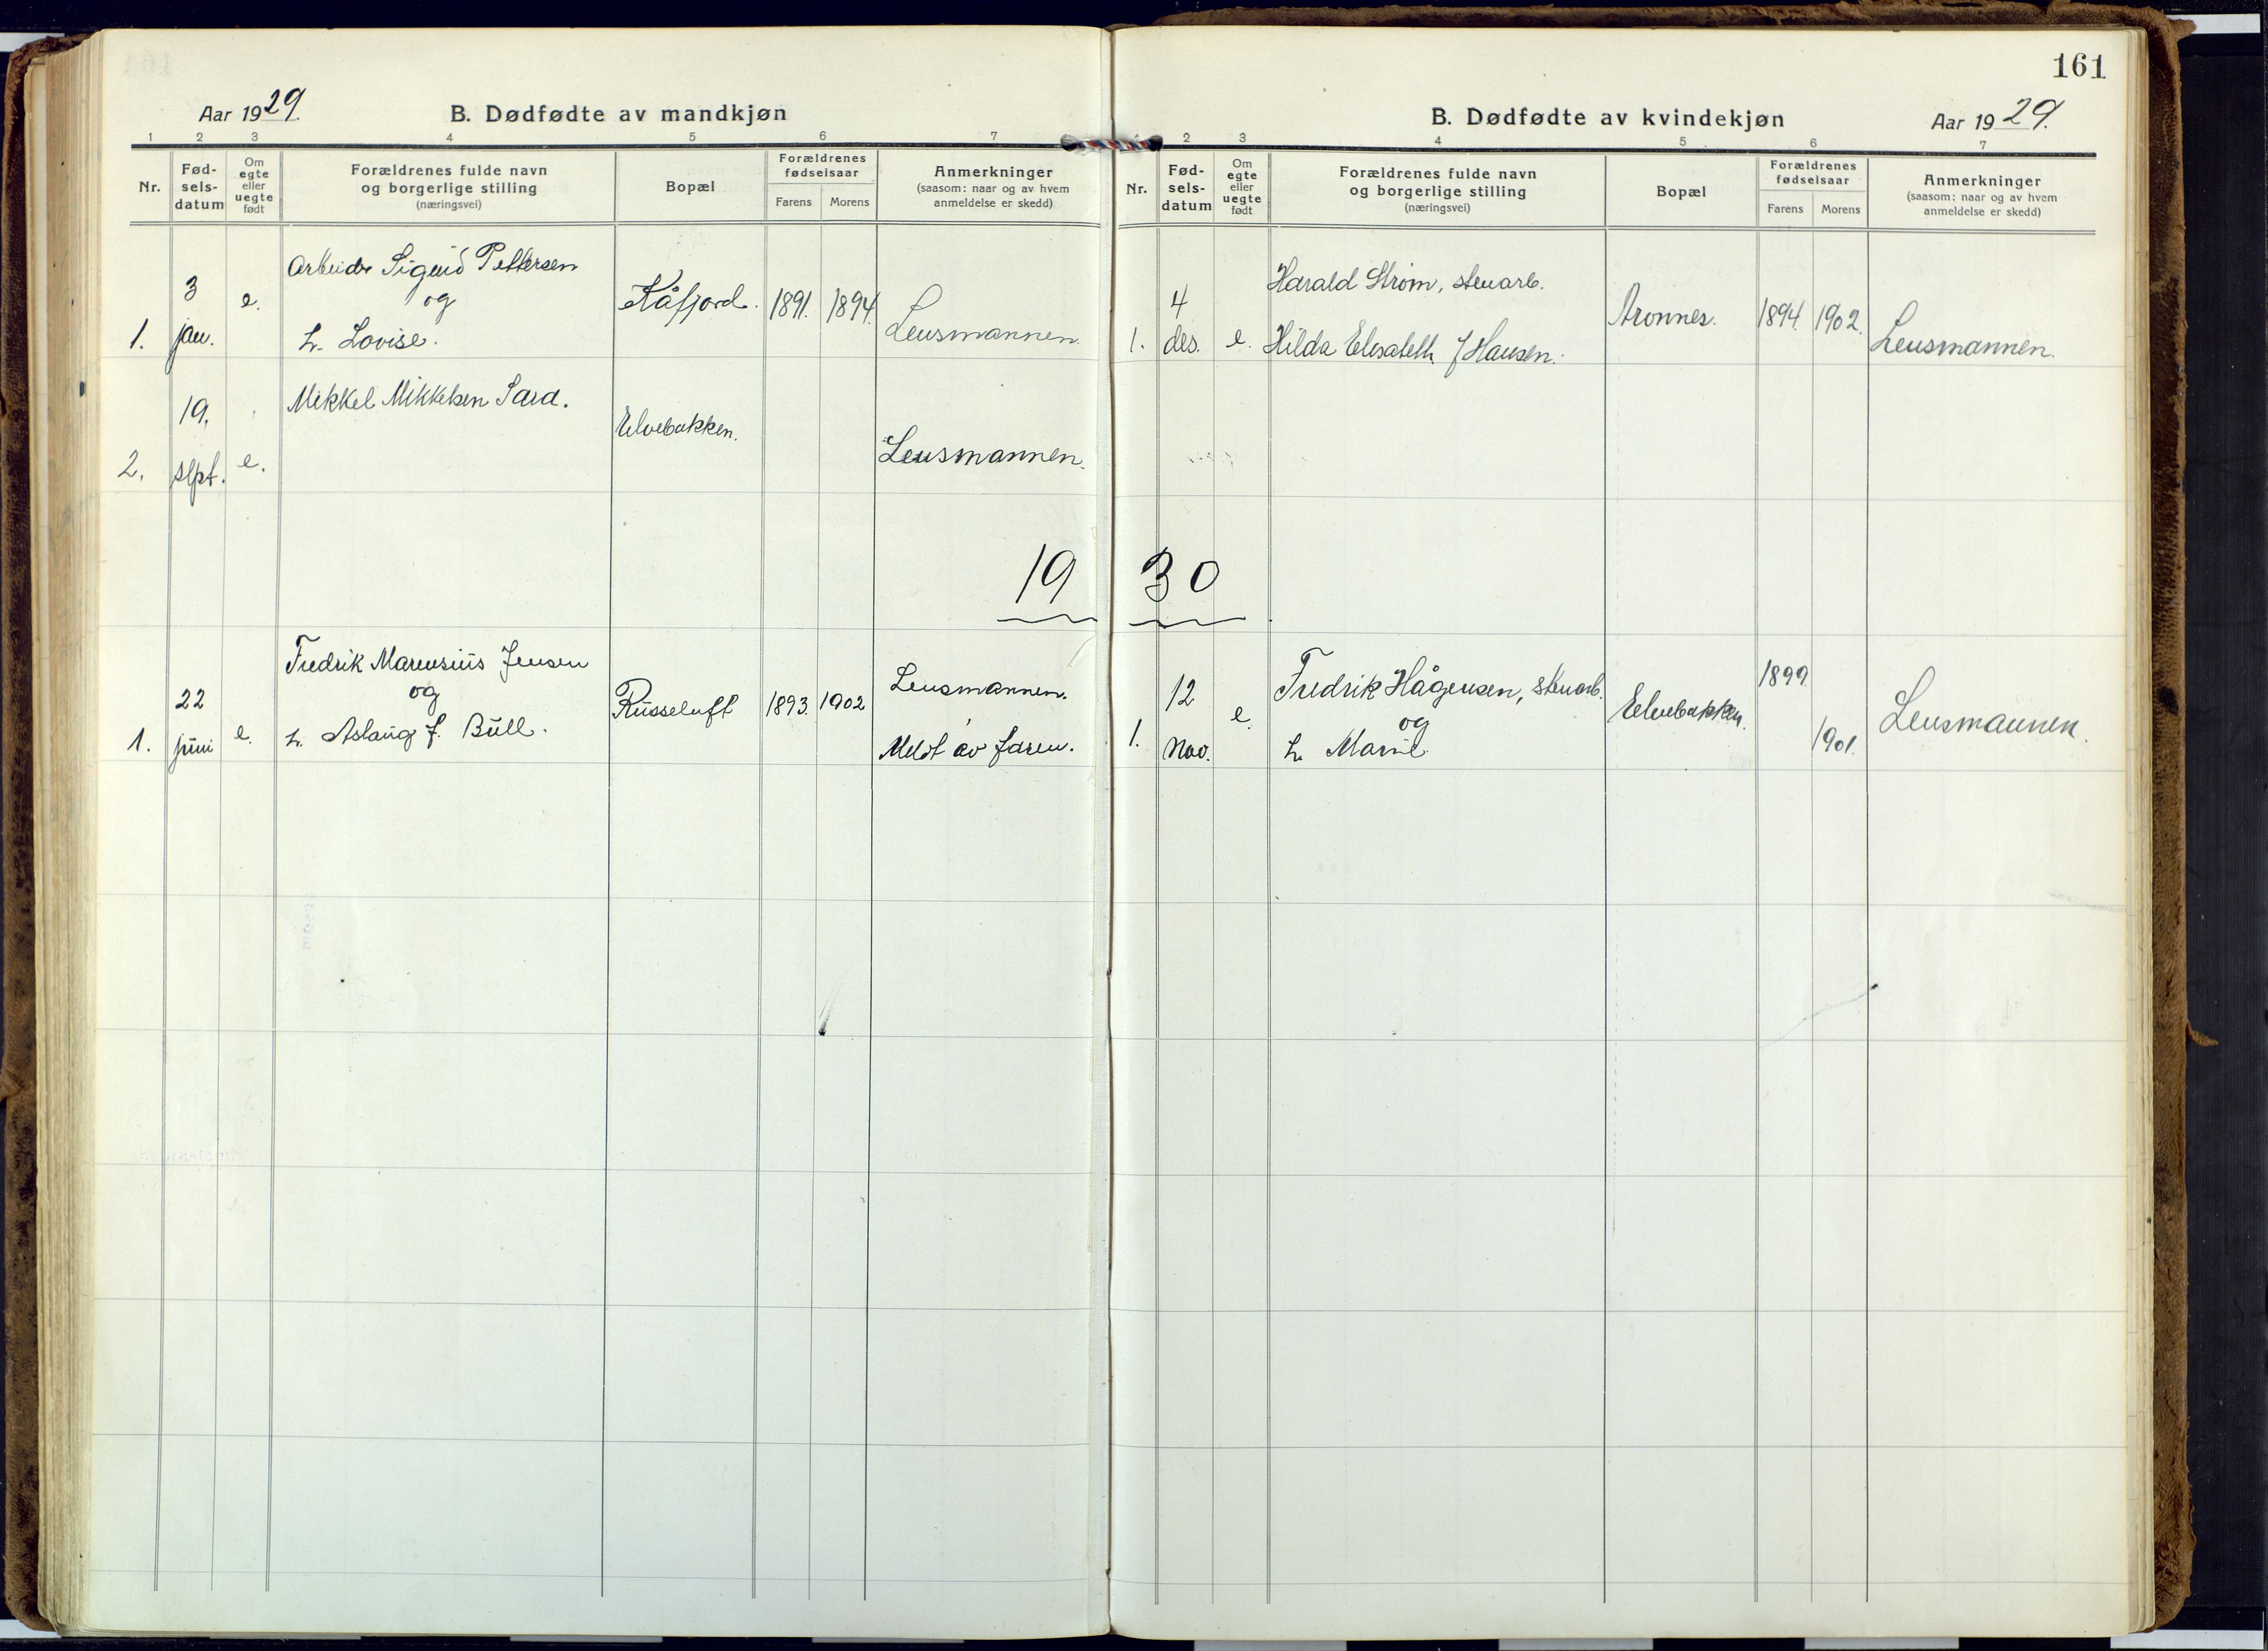 Aar 1929.
B. Dødfødte av mandkjøn
1 2 3 4 5 6 7
Nr.
Fød-
sels-
datum
Om
egte
eller
uegte
født
Forældrenes fulde navn
og borgerlige stilling
(næringsvei)
Bopæl
Forældrenes
fødselsaar
Farens Morens
Anmerkninger
(saasom: naar og av hvem
anmeldelse er skedd)
1. 3 jan. e.
Arbeider Sigurd Pettersen
og
h. Lovise.
Kåfjord. 1891. 1894.
Lensmannen.
2. 19. sept. e.
Mikkel Mikkelsen
Elvebakken.
Lensmannen.
19 30
1. 22 juni e.
Fredrik Jensen
og
h. Aslaug f. Bull.
Russeluft 1893. 1902
Lensmannen.
Meldt av faren.
161
B. Dødfødte av kvindekjøn
Aar 1929.
2 3 4 5 6 7
Nr.
Fød-
sels-
datum
Om
egte
eller
uegte
født
Forældrenes fulde navn
og borgerlige stilling
(næringsvei)
Bopæl
Forældrenes
fødselsaar
Farens Morens
Anmerkninger
(saasom: naar og av hvem
anmeldelse er skedd)
1. 4 des. e.
Harald Strøm, stenarb.
Hilda Elisabeth f Hansen.
Aronnes. 1894. 1902.
Lensmannen.
1. 12 Nov. e.
Fredrik Hågensen, stenarb.
og
h. Marie
Elvebakken. 1899. 1901.
Lensmannen.